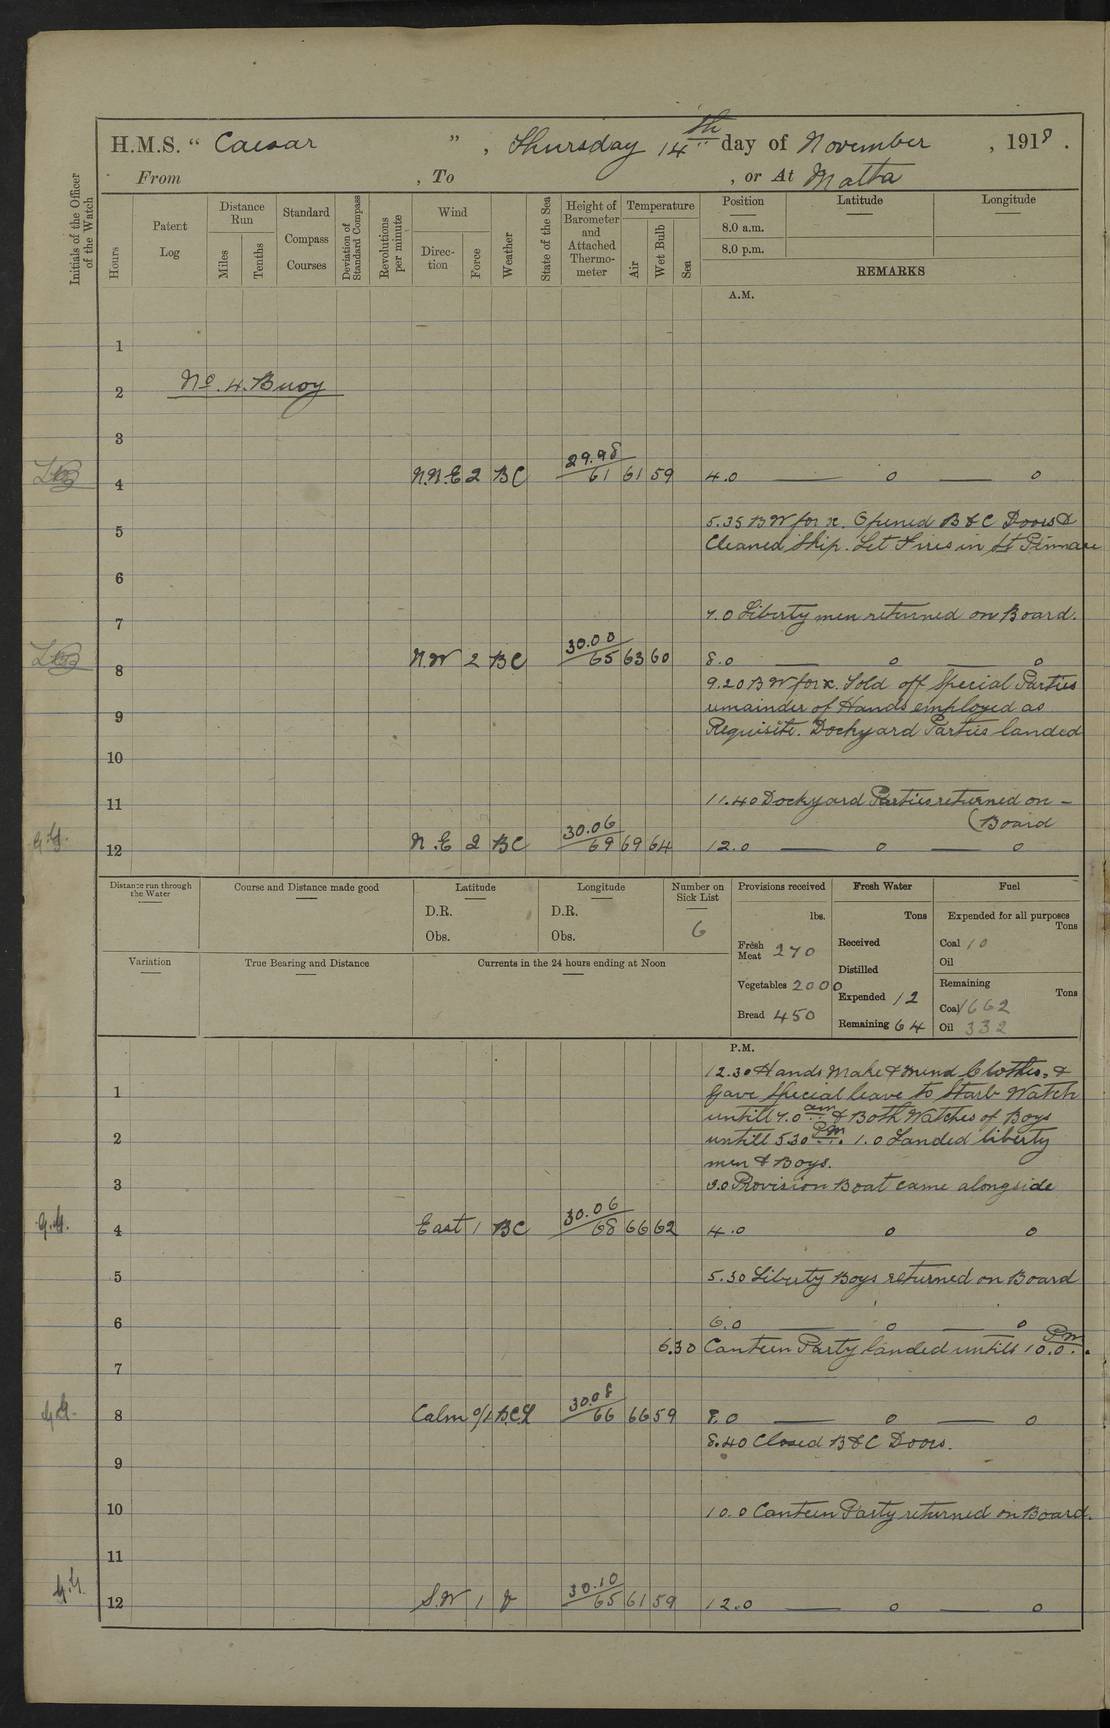 H.M.S. “ Caesar ” , Thursday 14th day of November , 1918 .
From , To , or At Malta
Initials of the Officer of the Watch
Hours
Patent Log
Distance Run
Miles
Tenths
Standard Compass Courses
Deviation of Standard Compass
Revolutions per minute
Wind
Direc-tion
Force
Weather
State of the Sea
Height of Barometer and Attached Thermo-meter
Temperature
Air
Wet Bulb
Sea
Position Latitude Longitude
8.0 a.m.
8.0 p.m.
REMARKS
A.M.
1
No. 4. Buoy
2
3
4 N.N.E 2 BC 29.98 61 61 59 4.0 — o — o
5 5.35 B W for x. Opened B & C Doors &
Cleaned Ship. Let Fires in St Pinnace
6
7 7.0 Liberty men returned on Board.
8 N.W 2 BC 30.00 65 63 60 8.0 — o — o
9.20 B W for x. Told off Special Parties
9 remainder of Hands employed as
Requisite. Dockyard Parties landed
10
11 11.40 Dockyard Parties returned on -
(Board
12 N.E 2 BC 30.06 69 69 64 12.0 — o — o
Distance run through the Water
Course and Distance made good
Latitude
D.R.
Obs.
Longitude
D.R.
Obs.
Number on Sick List
6
Variation
True Bearing and Distance
Currents in the 24 hours ending at Noon
Provisions received
lbs.
Fresh Meat 270
Vegetables 2000
Bread 450
Fresh Water
Tons
Received
Distilled
Expended 12
Remaining 64
Fuel
Expended for all purposes
Tons
Coal 10
Oil
Remaining
Tons
Coal 1662
Oil 332
P.M.
12.30 Hands Make & mend Clothes, &
1 Gave Special leave to Starb Watch
untill 7.0 am & Both Watches of Boys
2 untill 5.30 P.m. 1.0 Landed liberty
men & Boys.
3 3.0 Provision Boat came alongside
G.G. 4 East 1 BC 30.06 68 66 62 4.0 o o
5 5.30 Liberty Boys returned on Board
6 6.0 — o — o
6.30 Canteen Party landed untill 10.0 P.m.
7
8 Calm 0/1 B.C.L 30.08 66 66 59 8.0 — o — o
8.40 Closed B & C Doors.
9
10 10.0 Canteen Party returned on Board.
11
12 S.W 1 30.10 65 61 59 12.0 — o — o